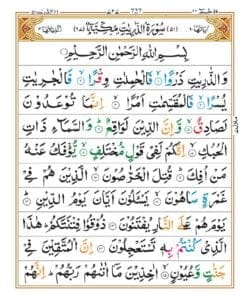 سُوْرَةُ الذّٰرِيٰتِ مَكِّيَّةٌ
بِسْمِ اللّٰهِ الرَّحْمٰنِ الرَّحِيْمِ
وَالذّٰرِيٰتِ ذَرْوًا ۙ فَالْحٰمِلٰتِ وِقْرًا ۙ فَالْجٰرِيٰتِ
يُسْرًا ۙ فَالْمُقَسِّمٰتِ اَمْرًا ۙ اِنَّمَا تُوْعَدُوْنَ
لَصَادِقٌ ۙ وَّاِنَّ الدِّيْنَ لَوَاقِعٌ ؕ وَالسَّمَآءِ ذَاتِ
الْحُبُكِ ۙ اِنَّكُمْ لَفِيْ قَوْلٍ مُّخْتَلِفٍ ۙ يُّؤْفَكُ عَنْهُ
مَنْ اُفِكَ ؕ قُتِلَ الْخَرّٰصُوْنَ ۙ الَّذِيْنَ هُمْ فِيْ
غَمْرَةٍ سَاهُوْنَ ۙ يَسْـَٔلُوْنَ اَيَّانَ يَوْمُ الدِّيْنِ ؕ
يَوْمَ هُمْ عَلَى النَّارِ يُفْتَنُوْنَ ذُوْقُوْا فِتْنَتَكُمْ ؕ هٰذَا
الَّذِيْ كُنْتُمْ بِهٖ تَسْتَعْجِلُوْنَ اِنَّ الْمُتَّقِيْنَ فِيْ
جَنّٰتٍ وَّعُيُوْنٍ ۙ اٰخِذِيْنَ مَاۤ اٰتٰىهُمْ رَبُّهُمْ ؕ اِنَّهُمْ